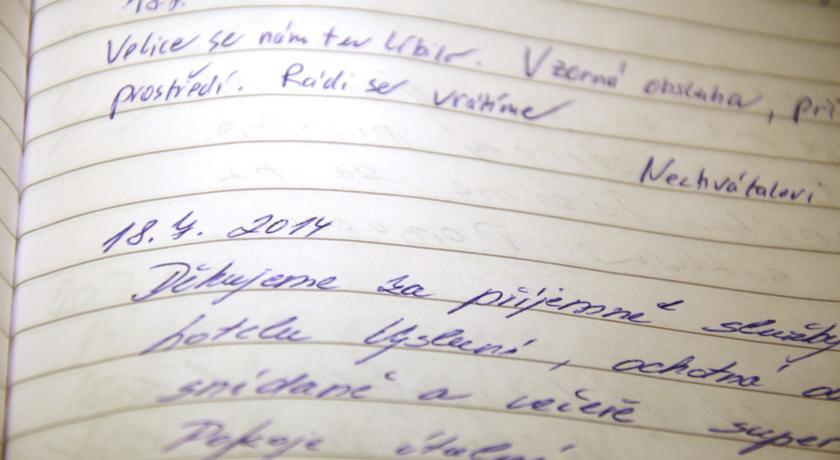 Velice se nám tu líbilo. Vzorná obsluha, pří
prostředí. Rádi se vrátíme
Nechvátalovi
18. 4. 2014
Děkujeme za příjemné služby
hotelu Vysluní, ochotná
snídaně a večeře super
Pokoje útulné